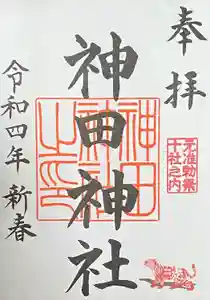 奉拝
神田神社
令和四年 新春
元准勅祭
十社之内
神田
神社
之印